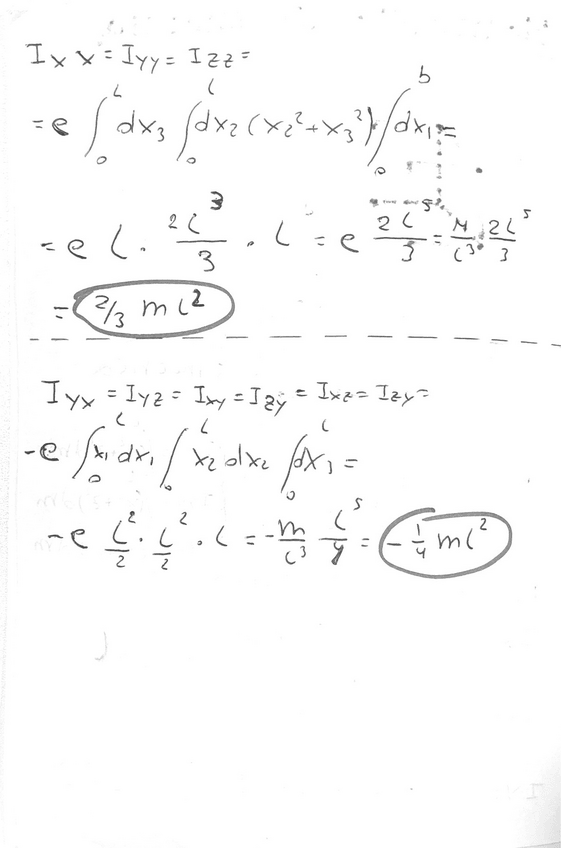 Ixx = Iyy = Izz =
= ρ ∫₀ᴸ dx₃ ∫₀ᴸ dx₂ (x₂² + x₃²) ∫₀ᵇ dx₁ =
= ρ L · 2L³/3 · L = ρ 2L⁵/3 = M/L³ · 2L⁵/3
= 2/3 m L²
Iyx = Iyz = Ixy = Izy = Ixz = Izy =
-ρ ∫₀ᴸ x₁ dx₁ ∫₀ᴸ x₂ dx₂ ∫₀ᴸ dx₃ =
-ρ L²/2 · L²/2 · L = -m/L³ L⁵/4 = -1/4 m L²